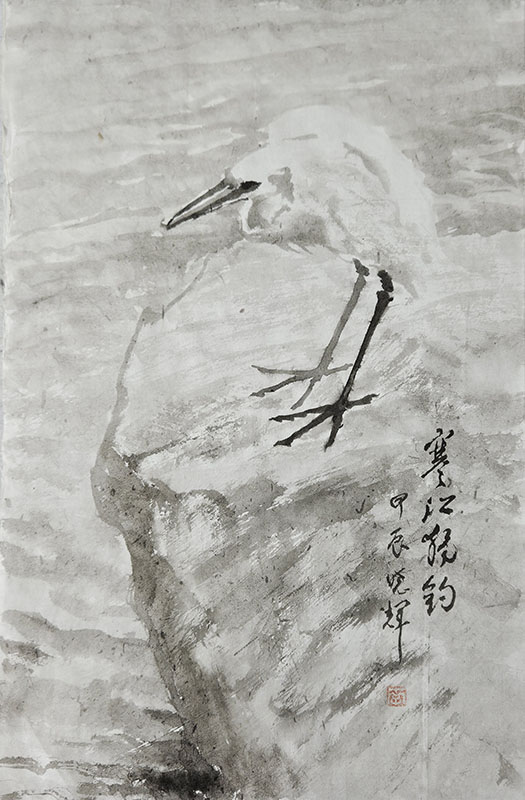 寒江独钓
甲辰晓辉